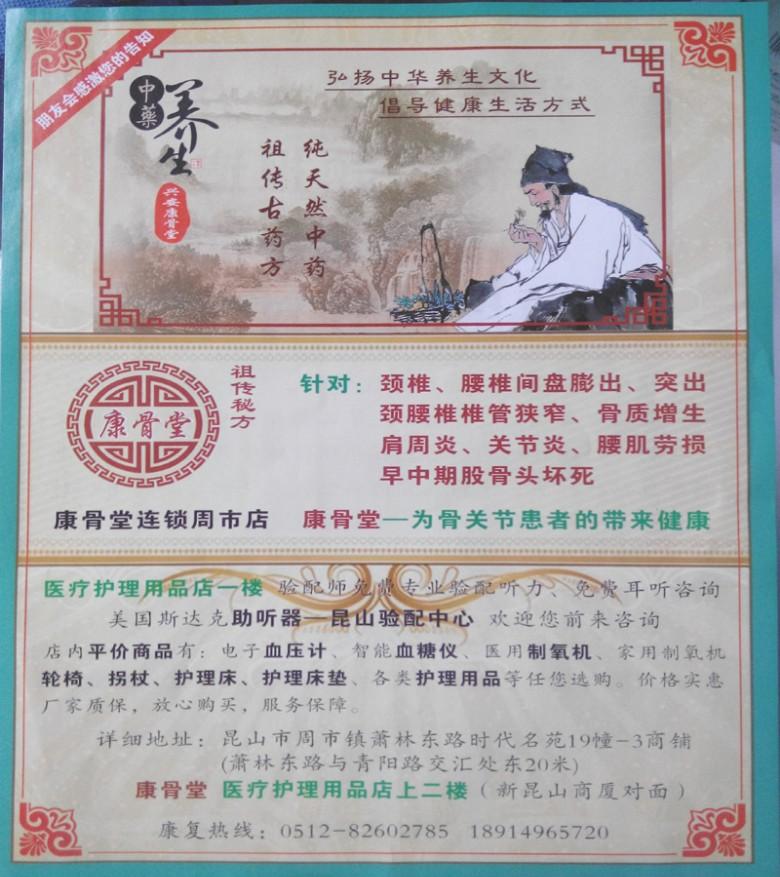 朋友会感激您的告知
中药
养生
兴安康骨堂
弘扬中华养生文化
倡导健康生活方式
纯天然中药
祖传古药方
康骨堂
祖传秘方
针对：颈椎、腰椎间盘膨出、突出
颈腰椎椎管狭窄、骨质增生
肩周炎、关节炎、腰肌劳损
早中期股骨头坏死
康骨堂连锁周市店 康骨堂—为骨关节患者的带来健康
医疗护理用品店一楼 验配师免费专业验配听力、免费耳听咨询
美国斯达克助听器—昆山验配中心 欢迎您前来咨询
店内平价商品有：电子血压计、智能血糖仪、医用制氧机、家用制氧机
轮椅、拐杖、护理床、护理床垫、各类护理用品等任您选购。价格实惠
厂家质保，放心购买，服务保障。
详细地址：昆山市周市镇萧林东路时代名苑19幢-3商铺
(萧林东路与青阳路交汇处东20米)
康骨堂 医疗护理用品店上二楼（新昆山商厦对面）
康复热线：0512-82602785 18914965720